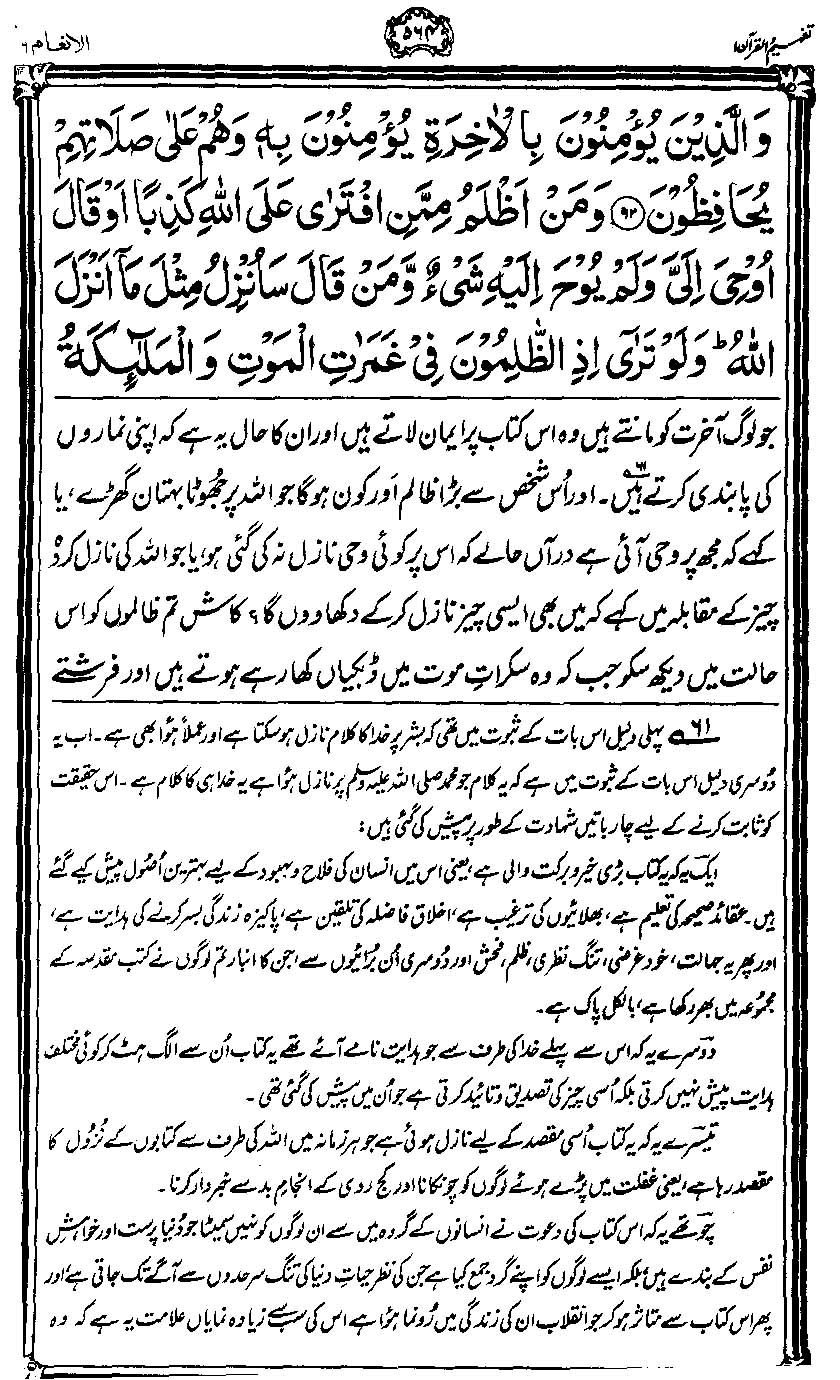 تفہیم القرآن۱ ۵۶۴ الانعام ۶
وَالَّذِيْنَ يُؤْمِنُوْنَ بِالْاٰخِرَةِ يُؤْمِنُوْنَ بِهٖ وَهُمْ عَلٰى صَلَاتِهِمْ
يُحَافِظُوْنَ ﴿۹۲﴾ وَمَنْ اَظْلَمُ مِمَّنِ افْتَرٰى عَلَى اللّٰهِ كَذِبًا اَوْ قَالَ
اُوْحِيَ اِلَيَّ وَلَمْ يُوْحَ اِلَيْهِ شَيْءٌ وَّمَنْ قَالَ سَاُنْزِلُ مِثْلَ مَاۤ اَنْزَلَ
اللّٰهُ ؕ وَلَوْ تَرٰٓى اِذِ الظّٰلِمُوْنَ فِيْ غَمَرٰتِ الْمَوْتِ وَالْمَلٰٓئِكَةُ
جو لوگ آخرت کو مانتے ہیں وہ اس کتاب پر ایمان لاتے ہیں اور ان کا حال یہ ہے کہ اپنی نمازوں
کی پابندی کرتے ہیں۶۱۔ اور اُس شخص سے بڑا ظالم اَور کون ہوگا جو اللہ پر جھُوٹا بہتان گھڑے، یا
کہے کہ مجھ پر وحی آئی ہے درآں حالے کہ اس پر کوئی وحی نازل نہ کی گئی ہو، یا جو اللہ کی نازل کردہ
چیز کے مقابلہ میں کہے کہ میں بھی ایسی چیز نازل کرکے دکھا دوں گا؟ کاش تم ظالموں کو اس
حالت میں دیکھ سکو جب کہ وہ سکراتِ موت میں ڈبکیاں کھا رہے ہوتے ہیں اور فرشتے
۶۱ پہلی دلیل اس بات کے ثبوت میں تھی کہ بشر پر خدا کا کلام نازل ہو سکتا ہے اور عملاً ہُوا بھی ہے۔ اب یہ
دُوسری دلیل اس بات کے ثبوت میں ہے کہ یہ کلام جو محمد صلی اللہ علیہ وسلم پر نازل ہُوا ہے یہ خدا ہی کا کلام ہے۔ اس حقیقت
کو ثابت کرنے کے لیے چار باتیں شہادت کے طور پر پیش کی گئی ہیں:
ایک یہ کہ یہ کتاب بڑی خیر و برکت والی ہے، یعنی اس میں انسان کی فلاح و بہبود کے لیے بہترین اُصُول پیش کیے گئے
ہیں۔ عقائد صحیحہ کی تعلیم ہے، بھلائیوں کی ترغیب ہے، اخلاق فاضلہ کی تلقین ہے، پاکیزہ زندگی بسر کرنے کی ہدایت ہے،
اور پھر یہ جہالت، خود غرضی، تنگ نظری، ظلم، فحش اور دُوسری اُن بُرائیوں سے، جن کا انبار تم لوگوں نے کتب مقدسہ کے
مجموعہ میں بھر رکھا ہے، بالکل پاک ہے۔
دوسرے یہ کہ اس سے پہلے خدا کی طرف سے جو ہدایت نامے آئے تھے یہ کتاب اُن سے الگ ہٹ کر کوئی مختلف
ہدایت پیش نہیں کرتی بلکہ اُسی چیز کی تصدیق و تائید کرتی ہے جو اُن میں پیش کی گئی تھی۔
تیسرے یہ کہ یہ کتاب اُسی مقصد کے لیے نازل ہوئی ہے جو ہر زمانہ میں اللہ کی طرف سے کتابوں کے نُزُول کا
مقصد رہا ہے، یعنی غفلت میں پڑے ہوئے لوگوں کو چونکانا اور کج روی کے انجامِ بد سے خبردار کرنا۔
چوتھے یہ کہ اس کتاب کی دعوت نے انسانوں کے گروہ میں سے ان لوگوں کو نہیں سمیٹا جو دُنیا پرست اور خواہشِ
نفس کے بندے ہیں، بلکہ ایسے لوگوں کو اپنے گرد جمع کیا ہے جن کی نظر حیاتِ دنیا کی تنگ سرحدوں سے آگے تک جاتی ہے، اور
پھر اس کتاب سے متاثر ہو کر جو انقلاب ان کی زندگی میں رُونما ہُوا ہے اس کی سب سے زیادہ نمایاں علامت یہ ہے کہ وہ